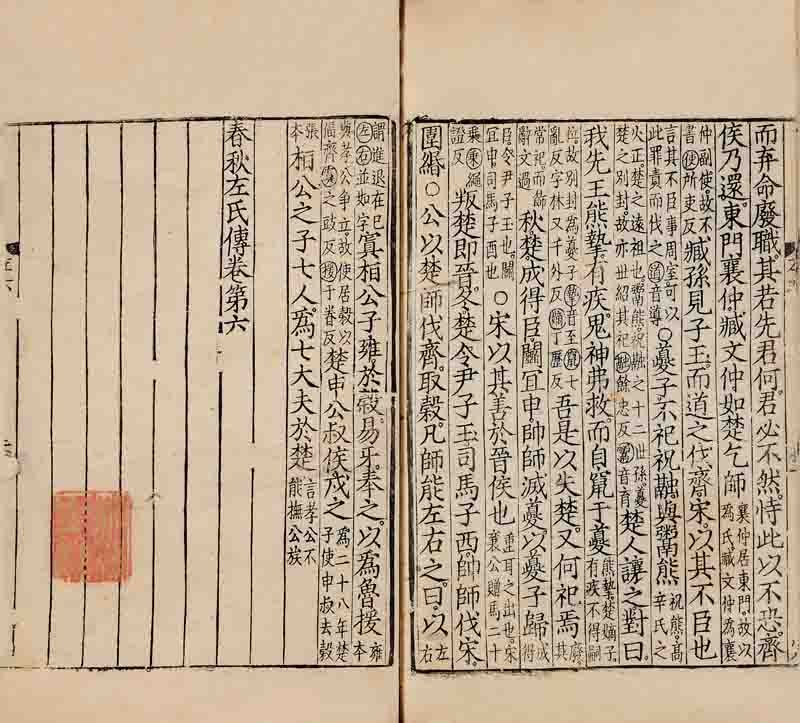 而弃命廢職其若先君何君必不然恃此以不恐齊
侯乃還東門襄仲臧文仲如楚乞師襄仲居東門故以爲氏臧文仲爲襄
仲副使故不書使所吏反臧孫見子玉而道之伐齊宋以其不臣也
言其不臣事周室可以此罪責而伐之道音導○夔子不祀祝融與鬻熊祝熊高辛氏之
火正楚之遠祖也鬻熊祝融之十二世孫夔楚之別封故亦世紹其祀融餘忠反鬻音育楚人讓之對曰
我先王熊摯有疾鬼神弗赦而自竄于夔熊摯楚嫡子有疾不得嗣
位故別封爲夔子摯音至竄七亂反字林又千外反嫡丁歷反吾是以失楚又何祀焉廢其
常祀而飾辭文過秋楚成得臣鬬宜申帥師滅夔以夔子歸成得
臣令尹子玉也鬬宜申司馬子西也○宋以其善於晉侯也重耳之出也宋襄公贈馬二十
乘乘繩證反叛楚即晉冬楚令尹子玉司馬子西帥師伐宋
圍緡○公以楚師伐齊取穀凡師能左右之曰以左右
謂進退在己左右並如字寘桓公子雍於穀易牙奉之以爲魯援雍本
與孝公爭立故使居穀以偪齊寘之豉反援于眷反楚申公叔侯戍之爲二十八年楚子使申叔去穀
張本桓公之子七人爲七大夫於楚言孝公不能撫公族
春秋左氏傳卷第六